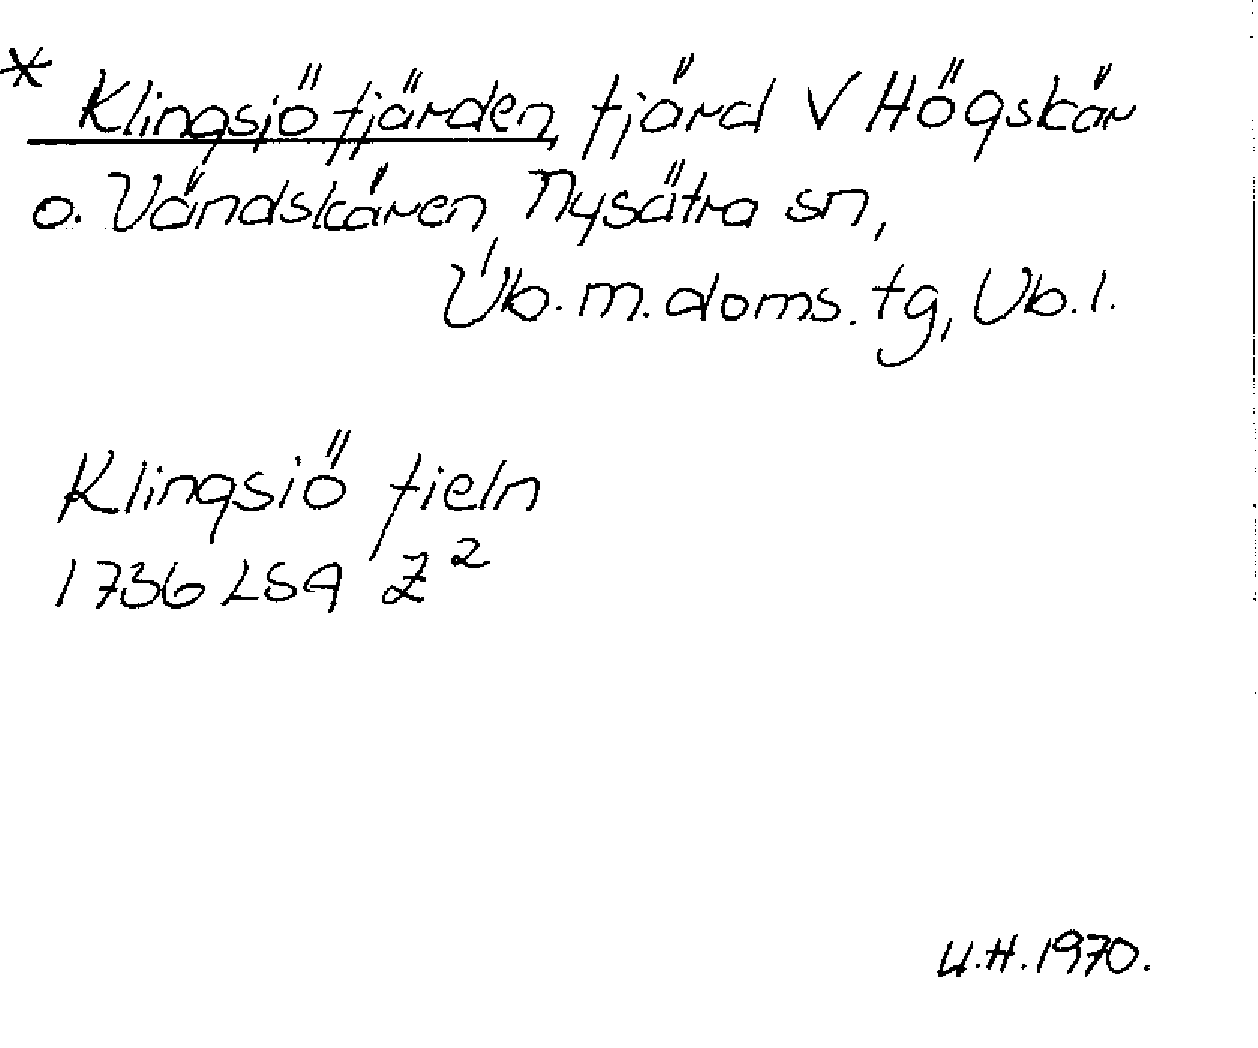 * Klingsjöfjärden, fjärd V Högskär
o. Vändskären, Nysätra sn,
Vb. m. doms. tg, Vb. l.
Klingsiö fieln
1736 LSA Z²
U.H. 1970.